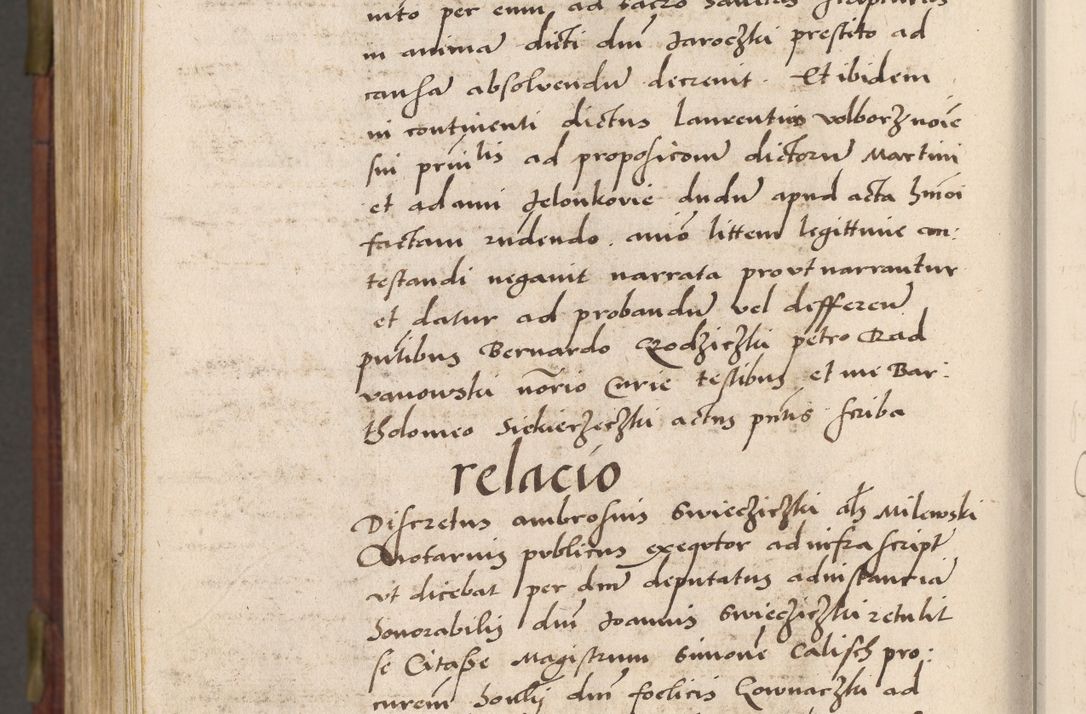 in animā dicti dnī Jaroczki prestito ad
causā absolvendū decrevit . Et ibidem
in continenti dictus laurentius volborz noīe
sui prīn^lis ad proposiconē dictorū Martini
et adami Jelonkovie dudū apud acta hmōi
factam rūdendo . aniō littem legittime con:
testandi negavit narrata pro vt narrantur
et datur ad probandū vel differenū
pñtibus Bernardo Rodziczki petro Rad
vanowski nōrio Curie testibus et me Bar:
tholomeo Siekierzeczki actus pñtis scriba
relacio
Discretus ambrosius Swieczickzki als Milewski
Notarius publicus exequtor ad infra script
vt dicebat per dnū deputatus ad instanciā
honorabilis dnī Joannis Swieczickzki retulit
se Citasse Magistrum Simonē Calisch pro:
curem̄ honlis dnī foelicis Gownaczki ad